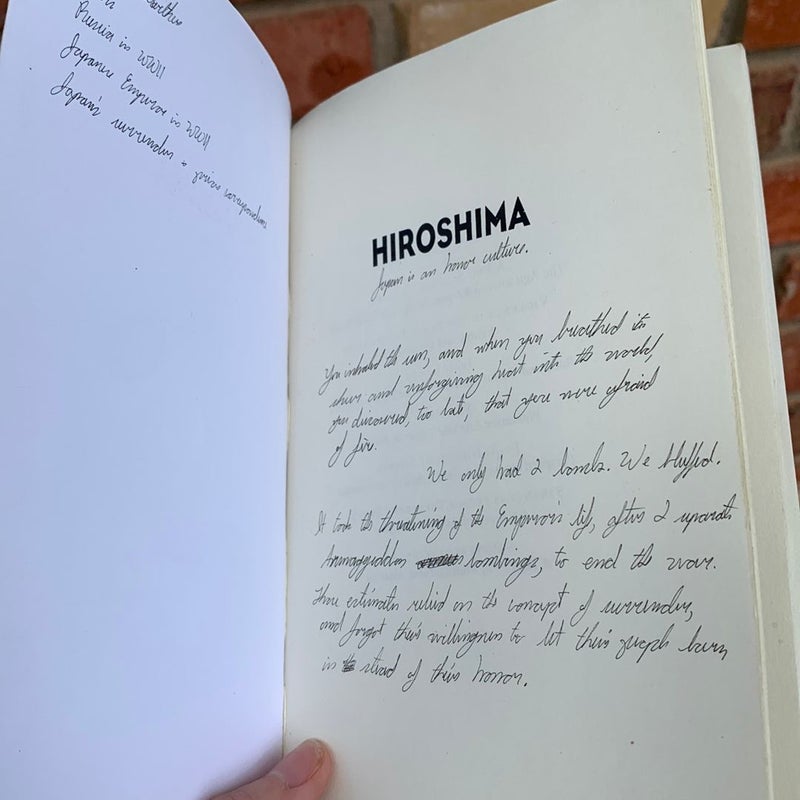 Russia in WWII
Japanese Emperor in WWII
Japan's surrender &
HIROSHIMA
Japan is an honor culture.
You inhaled the sun, and when you breathed its
sheer and unforgiving heat into the world,
you discovered, too late, that you were afraid
of fire.
We only had 2 bombs. We bluffed.
It took the threatening of the Emperor's life, after 2 separate
Armageddon bombings, to end the war.
estimates relied on the concept of surrender,
and forgot their willingness to let their people burn
in stead of their honor.